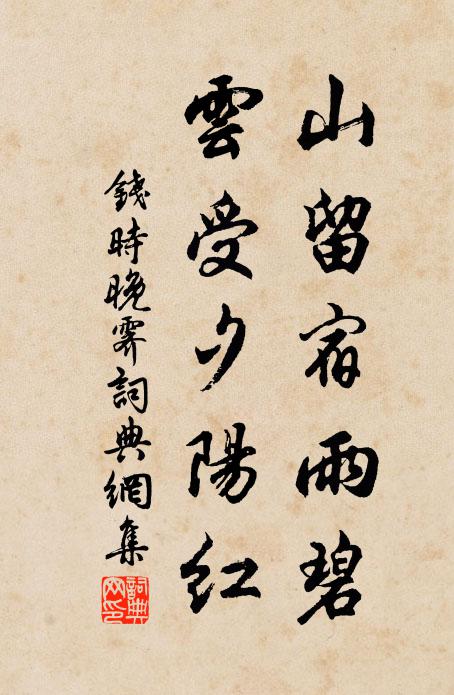 山留宿雨碧
雲受夕陽紅
錢時晚霽詞典網集
詞典網印